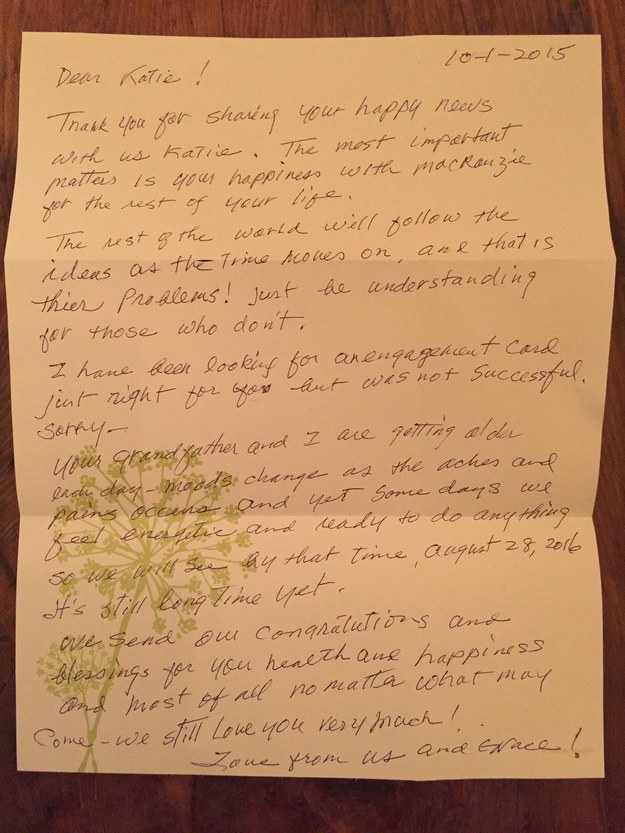 10-1-2015
Dear Katie!
Thank you for sharing your happy news
with us Katiie. The most important
matters is your happiness with MacKenzie
for the rest of your life.
The rest of the world will follow the
ideas as the time moves on, and that is
thier Problems! Just be understanding
for those who don't.
I have been looking for an engagement card
just right for you but was not successful.
Sorry—
Your grandfather and I are getting older
each day - moods change as the aches and
pains occurs and yet some days we
feel energetic and ready to do anything
so we will see by that time, August 28, 2016
it's still long time yet.
We send our Congratutions and
blessings for your health and happiness
and most of all no matter what may
Come - we still Love you very much!
Love from us and Grace!